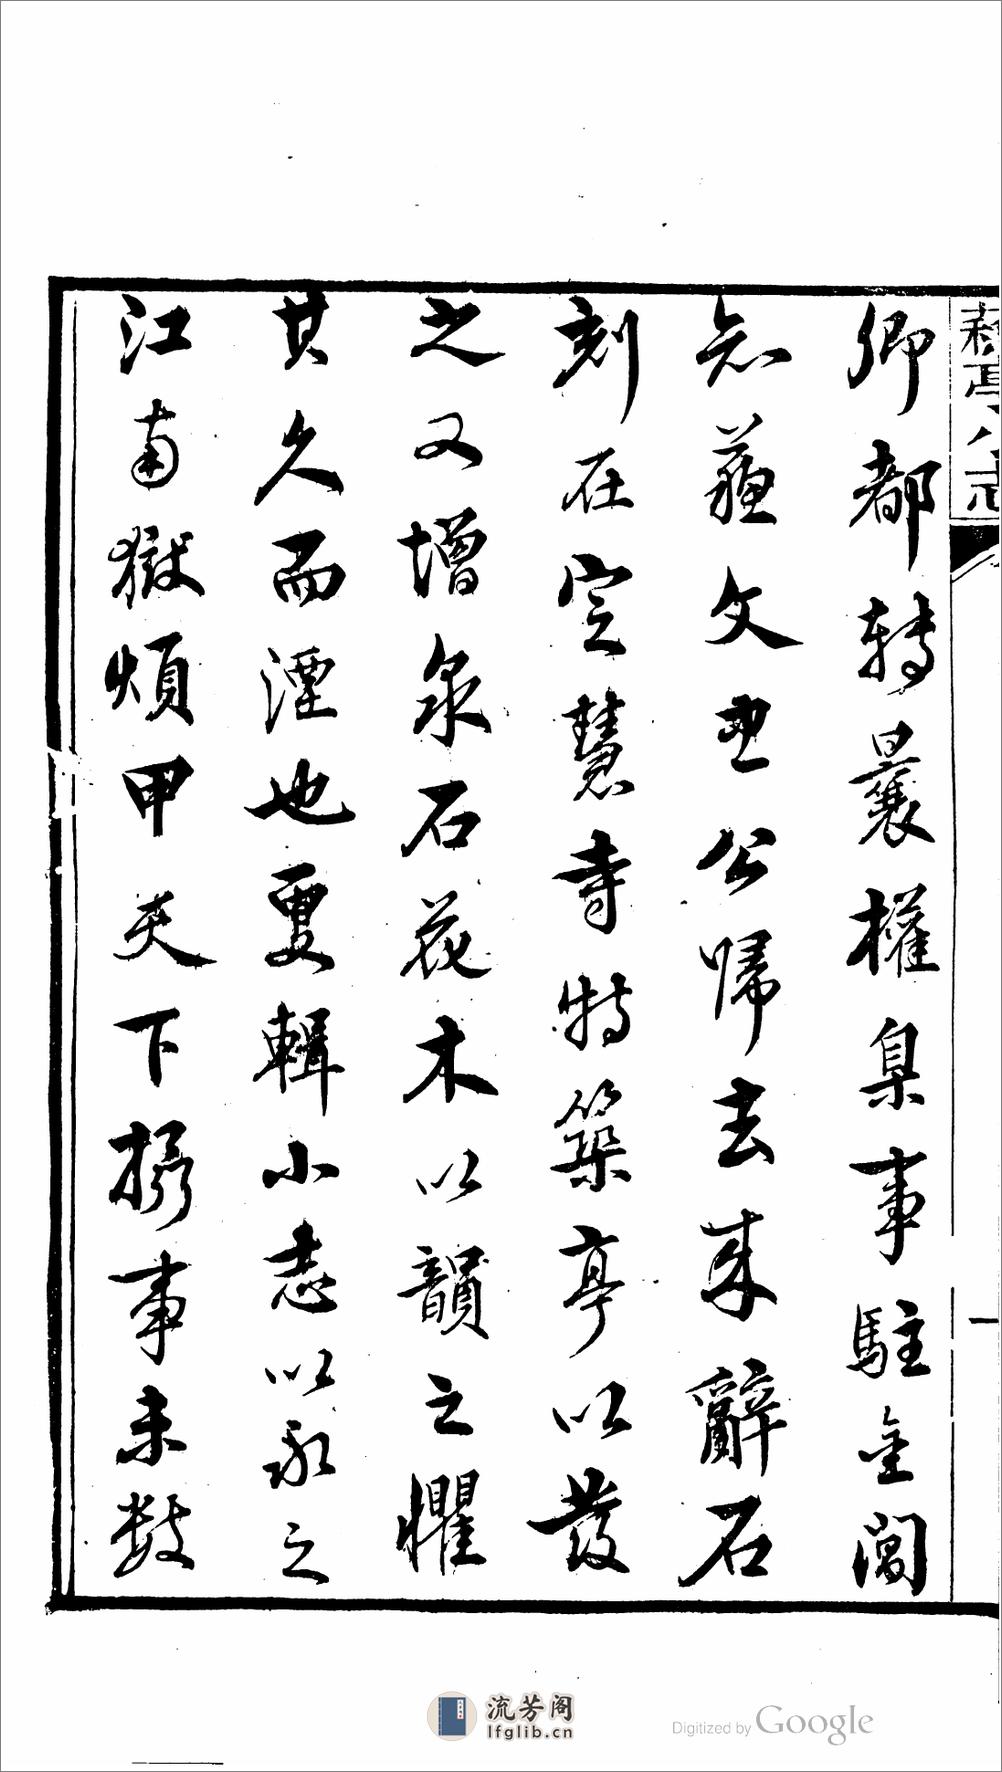 卿都轉曩權臬事駐金閶
知蘇文忠公歸去來辭石
刻在定慧寺特築亭以護
之又增泉石花木以韻之懼
其久而湮也更輯小志以永之
江南獄煩甲天下攝事未數
蘇亭小志
一
流芳阁
lfglib.cn
Digitized by Google